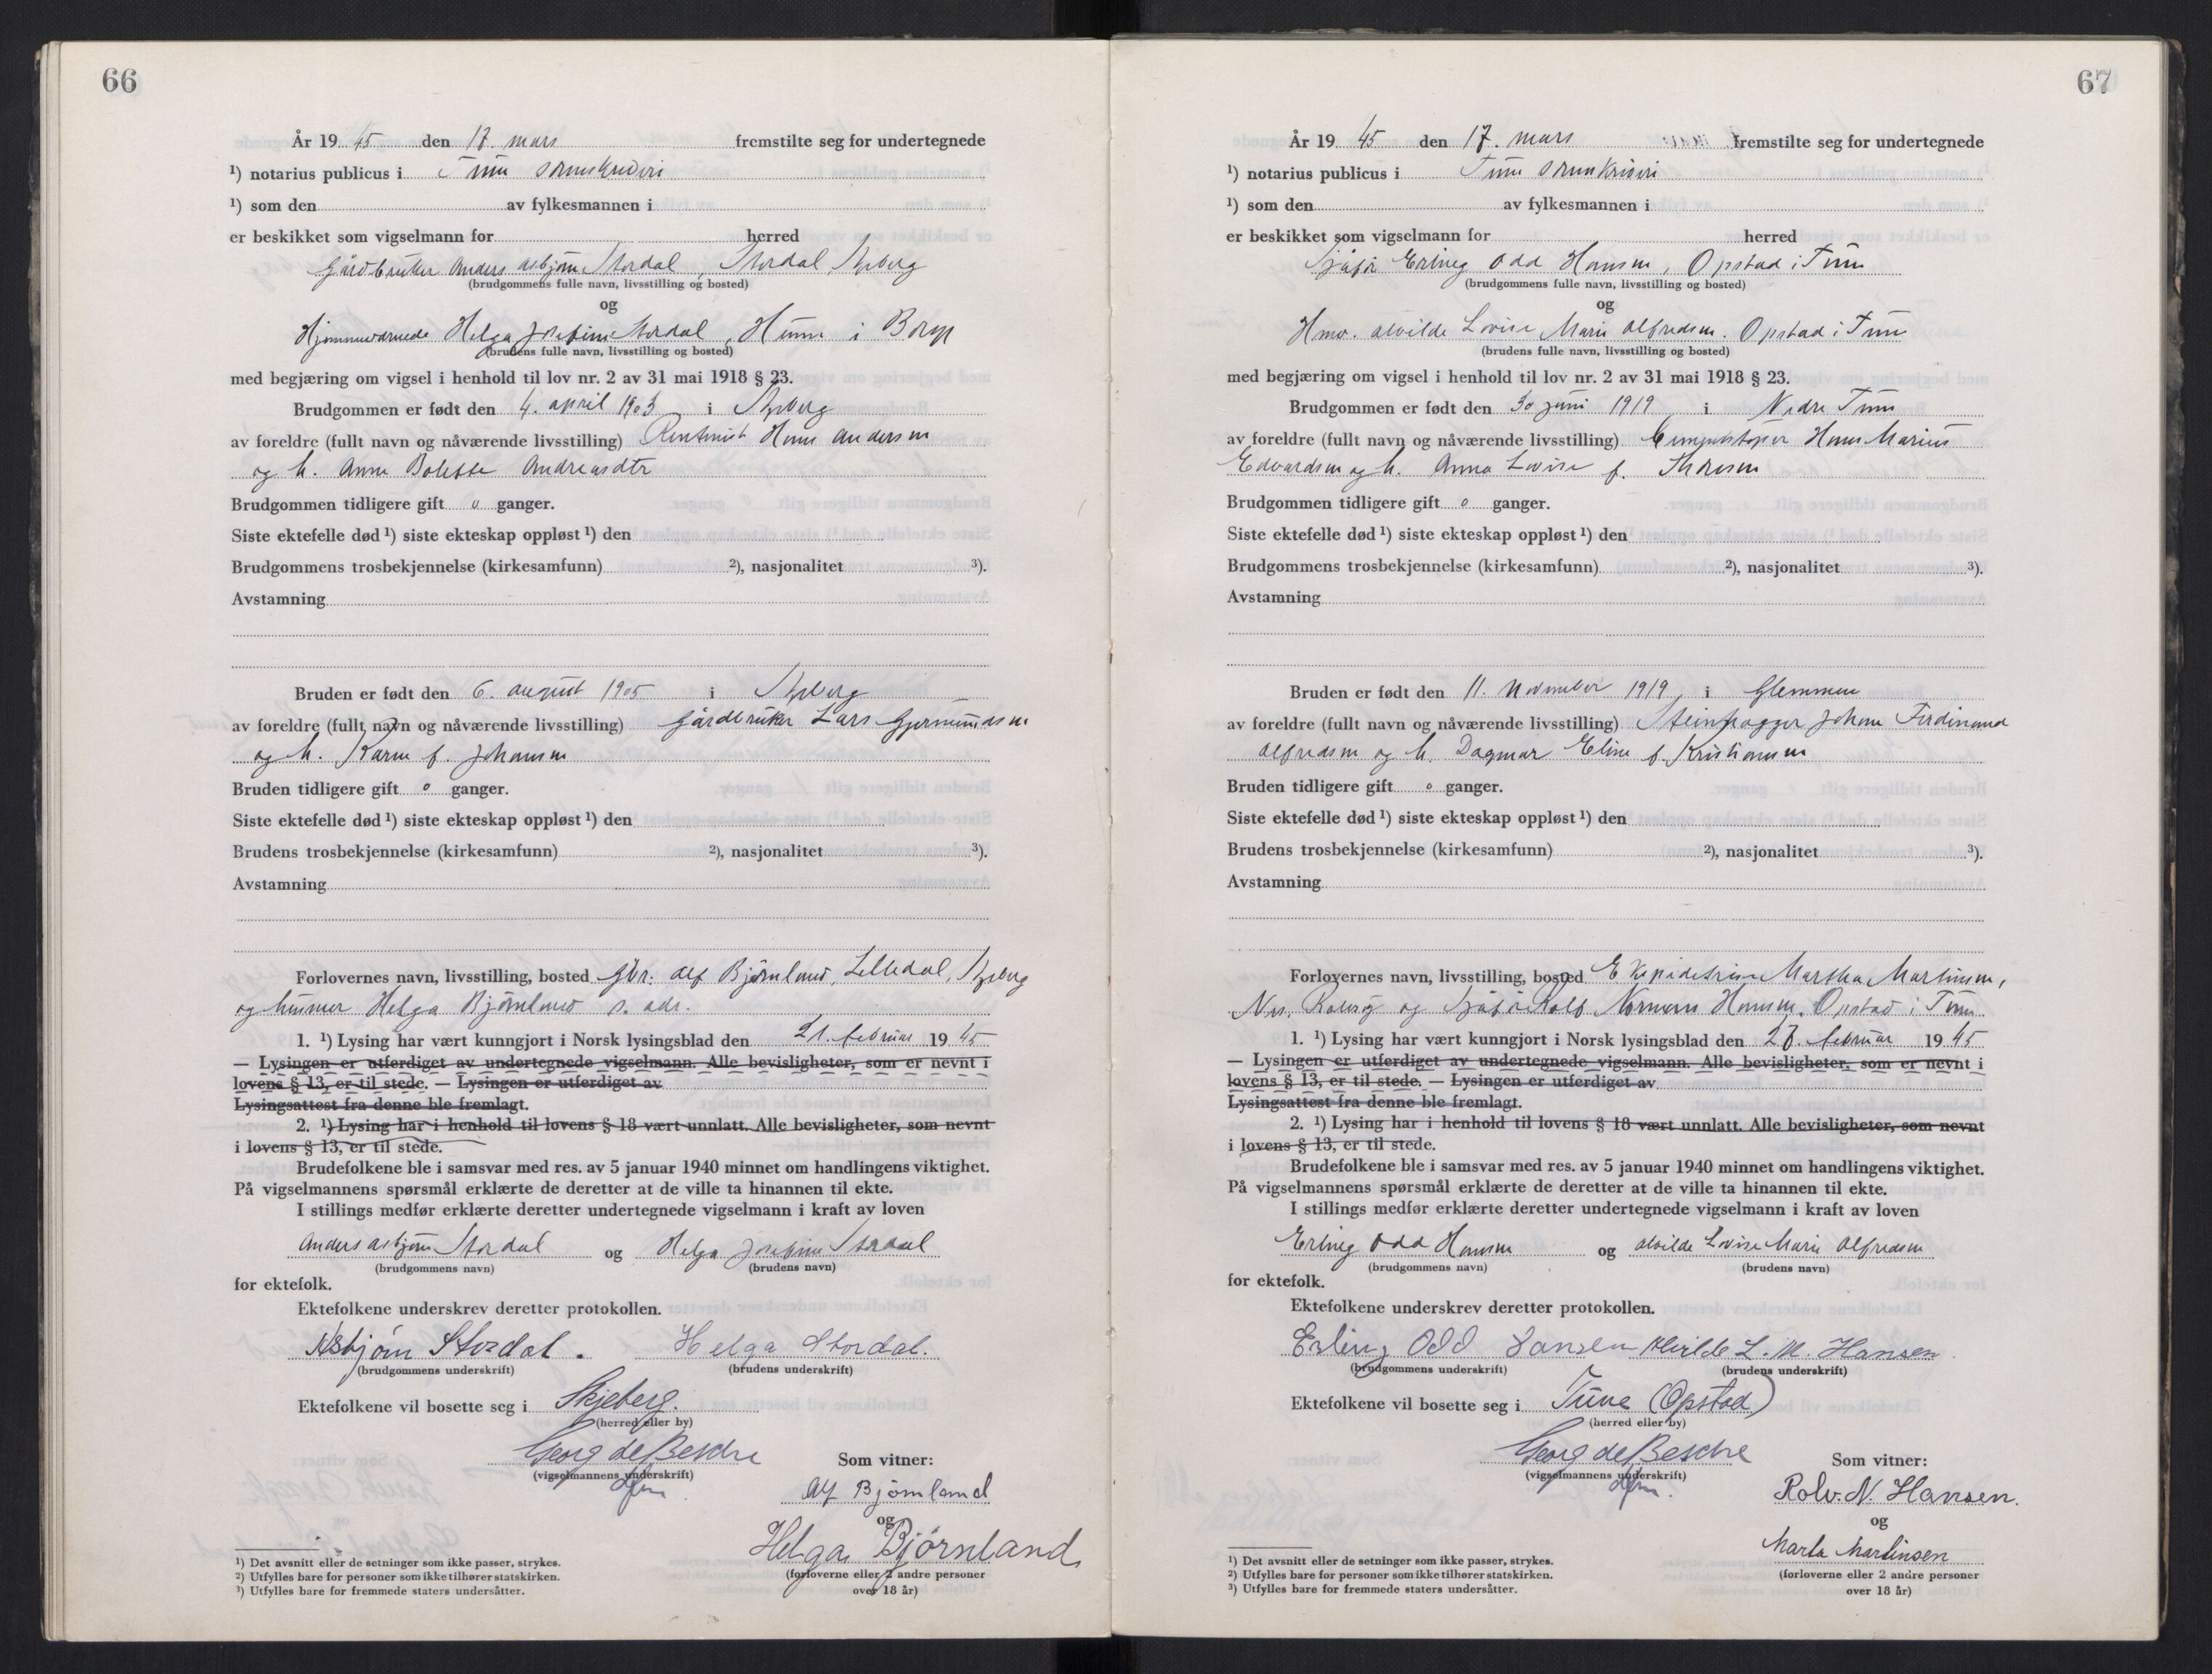 66
År 19 45 den 17. mars fremstilte seg for undertegnede
¹) notarius publicus i Tune sorenskriveri
¹) som den av fylkesmannen i
er beskikket som vigselmann for herred
Gårdbruker Anders Asbjørn Stordal, Stordal, Skjeberg
(brudgommens fulle navn, livsstilling og bosted)
og
Hjemmeværende Helga Josefine Stordal, Hunn i Borge
(brudens fulle navn, livsstilling og bosted)
med begjæring om vigsel i henhold til lov nr. 2 av 31 mai 1918 § 23.
Brudgommen er født den 4. april 1903 i Skjeberg
av foreldre (fullt navn og nåværende livsstilling) Rentenist Hans Andersen
og h. Anne Bolette Andreasdtr
Brudgommen tidligere gift 0 ganger.
Siste ektefelle død ¹) siste ekteskap oppløst ¹) den
Brudgommens trosbekjennelse (kirkesamfunn) ²), nasjonalitet ³).
Avstamning
Bruden er født den 6. august 1905 i Skjeberg
av foreldre (fullt navn og nåværende livsstilling) Gårdbruker Lars Gjermundsen
og h. Karen f. Johansen
Bruden tidligere gift 0 ganger.
Siste ektefelle død ¹) siste ekteskap oppløst ¹) den
Brudens trosbekjennelse (kirkesamfunn) ²), nasjonalitet ³).
Avstamning
Forlovernes navn, livsstilling, bosted Gbr. Alf Bjørnland, Lilledal, Skjeberg
og hustru Helga Bjørnland s. adr.
1. ¹) Lysing har vært kunngjort i Norsk lysingsblad den 21. februar 19 45
— Lysingen er utferdiget av undertegnede vigselmann. Alle bevisligheter, som er nevnt i
lovens § 13, er til stede. — Lysingen er utferdiget av
Lysingsattest fra denne ble fremlagt.
2. ¹) Lysing har i henhold til lovens § 18 vært unnlatt. Alle bevisligheter, som nevnt
i lovens § 13, er til stede.
Brudefolkene ble i samsvar med res. av 5 januar 1940 minnet om handlingens viktighet.
På vigselmannens spørsmål erklærte de deretter at de ville ta hinannen til ekte.
I stillings medfør erklærte deretter undertegnede vigselmann i kraft av loven
Anders Asbjørn Stordal og Helga Josefine Stordal
(brudgommens navn) (brudens navn)
for ektefolk.
Ektefolkene underskrev deretter protokollen.
Asbjørn Stordal. Helga Stordal.
(brudgommens underskrift) (brudens underskrift)
Ektefolkene vil bosette seg i Skjeberg.
(herred eller by)
Georg de Besche
(vigselmannens underskrift)
Som vitner:
Alf Bjørnland
og
Helga Bjørnland
(forloverne eller 2 andre personer
over 18 år)
¹) Det avsnitt eller de setninger som ikke passer, strykes.
²) Utfylles bare for personer som ikke tilhører statskirken.
³) Utfylles bare for fremmede staters undersåtter.
67
År 19 45 den 17. mars fremstilte seg for undertegnede
¹) notarius publicus i Tune sorenskriveri
¹) som den av fylkesmannen i
er beskikket som vigselmann for herred
Erling Odd Hansen, Opstad i Tune
(brudgommens fulle navn, livsstilling og bosted)
og
Hmv. Alvilde Lovise Marie Alfredsen. Opstad i Tune
(brudens fulle navn, livsstilling og bosted)
med begjæring om vigsel i henhold til lov nr. 2 av 31 mai 1918 § 23.
Brudgommen er født den 30 juni 1919 i Nedre Tune
av foreldre (fullt navn og nåværende livsstilling) Hans Marius
Edvardsen og h. Anna Lovise f.
Brudgommen tidligere gift 0 ganger.
Siste ektefelle død ¹) siste ekteskap oppløst ¹) den
Brudgommens trosbekjennelse (kirkesamfunn) ²), nasjonalitet ³).
Avstamning
Bruden er født den 11. november 1919 i Glemmen
av foreldre (fullt navn og nåværende livsstilling) Steinhogger Johan Ferdinand
Alfredsen og h. Dagmar Eline f. Kristiansen
Bruden tidligere gift 0 ganger.
Siste ektefelle død ¹) siste ekteskap oppløst ¹) den
Brudens trosbekjennelse (kirkesamfunn) ²), nasjonalitet ³).
Avstamning
Forlovernes navn, livsstilling, bosted Ekspeditrise Martha Martinsen,
og Rolf Normann Hansen. Opstad i Tune
1. ¹) Lysing har vært kunngjort i Norsk lysingsblad den 27. februar 19 45
— Lysingen er utferdiget av undertegnede vigselmann. Alle bevisligheter, som er nevnt i
lovens § 13, er til stede. — Lysingen er utferdiget av
Lysingsattest fra denne ble fremlagt.
2. ¹) Lysing har i henhold til lovens § 18 vært unnlatt. Alle bevisligheter, som nevnt
i lovens § 13, er til stede.
Brudefolkene ble i samsvar med res. av 5 januar 1940 minnet om handlingens viktighet.
På vigselmannens spørsmål erklærte de deretter at de ville ta hinannen til ekte.
I stillings medfør erklærte deretter undertegnede vigselmann i kraft av loven
Erling Odd Hansen og Alvilde Lovise Marie Alfredsen
(brudgommens navn) (brudens navn)
for ektefolk.
Ektefolkene underskrev deretter protokollen.
Erling Odd Hansen Alvilde L. M. Hansen
(brudgommens underskrift) (brudens underskrift)
Ektefolkene vil bosette seg i Tune (Opstad)
(herred eller by)
Georg de Besche
(vigselmannens underskrift)
Som vitner:
Rolv. N. Hansen.
og
Marta Martinsen
(forloverne eller 2 andre personer
over 18 år)
¹) Det avsnitt eller de setninger som ikke passer, strykes.
²) Utfylles bare for personer som ikke tilhører statskirken.
³) Utfylles bare for fremmede staters undersåtter.